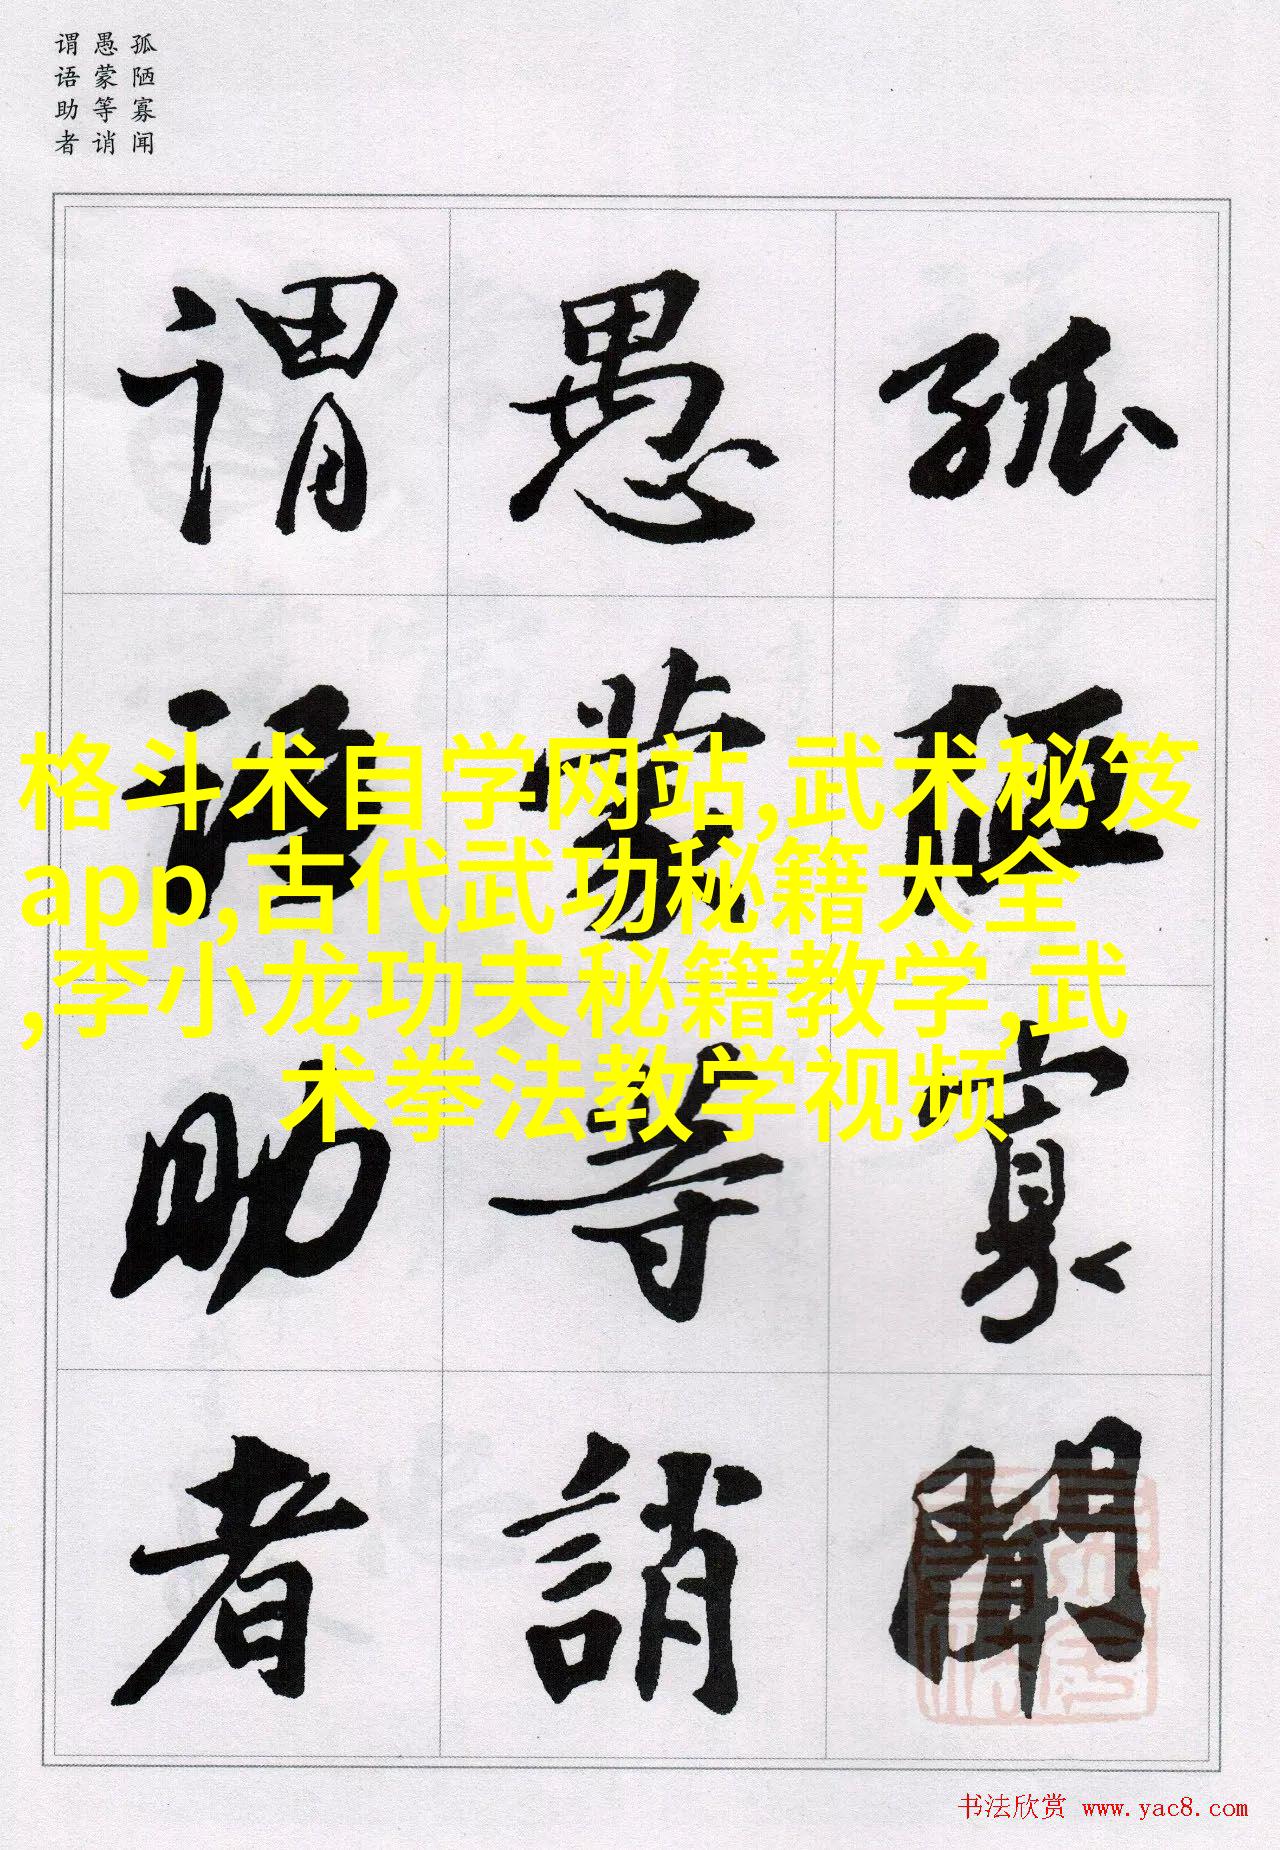 孤陋寡闻
愚蒙等诮
谓语助者
孤陋寡聞
愚蒙等誚
謂語助者
格斗术自学网站,武术秘笈
app,古代武功秘籍大全
,李小龙功夫秘籍教学,武
术拳法教学视频
书法欣赏 www.yac8.com